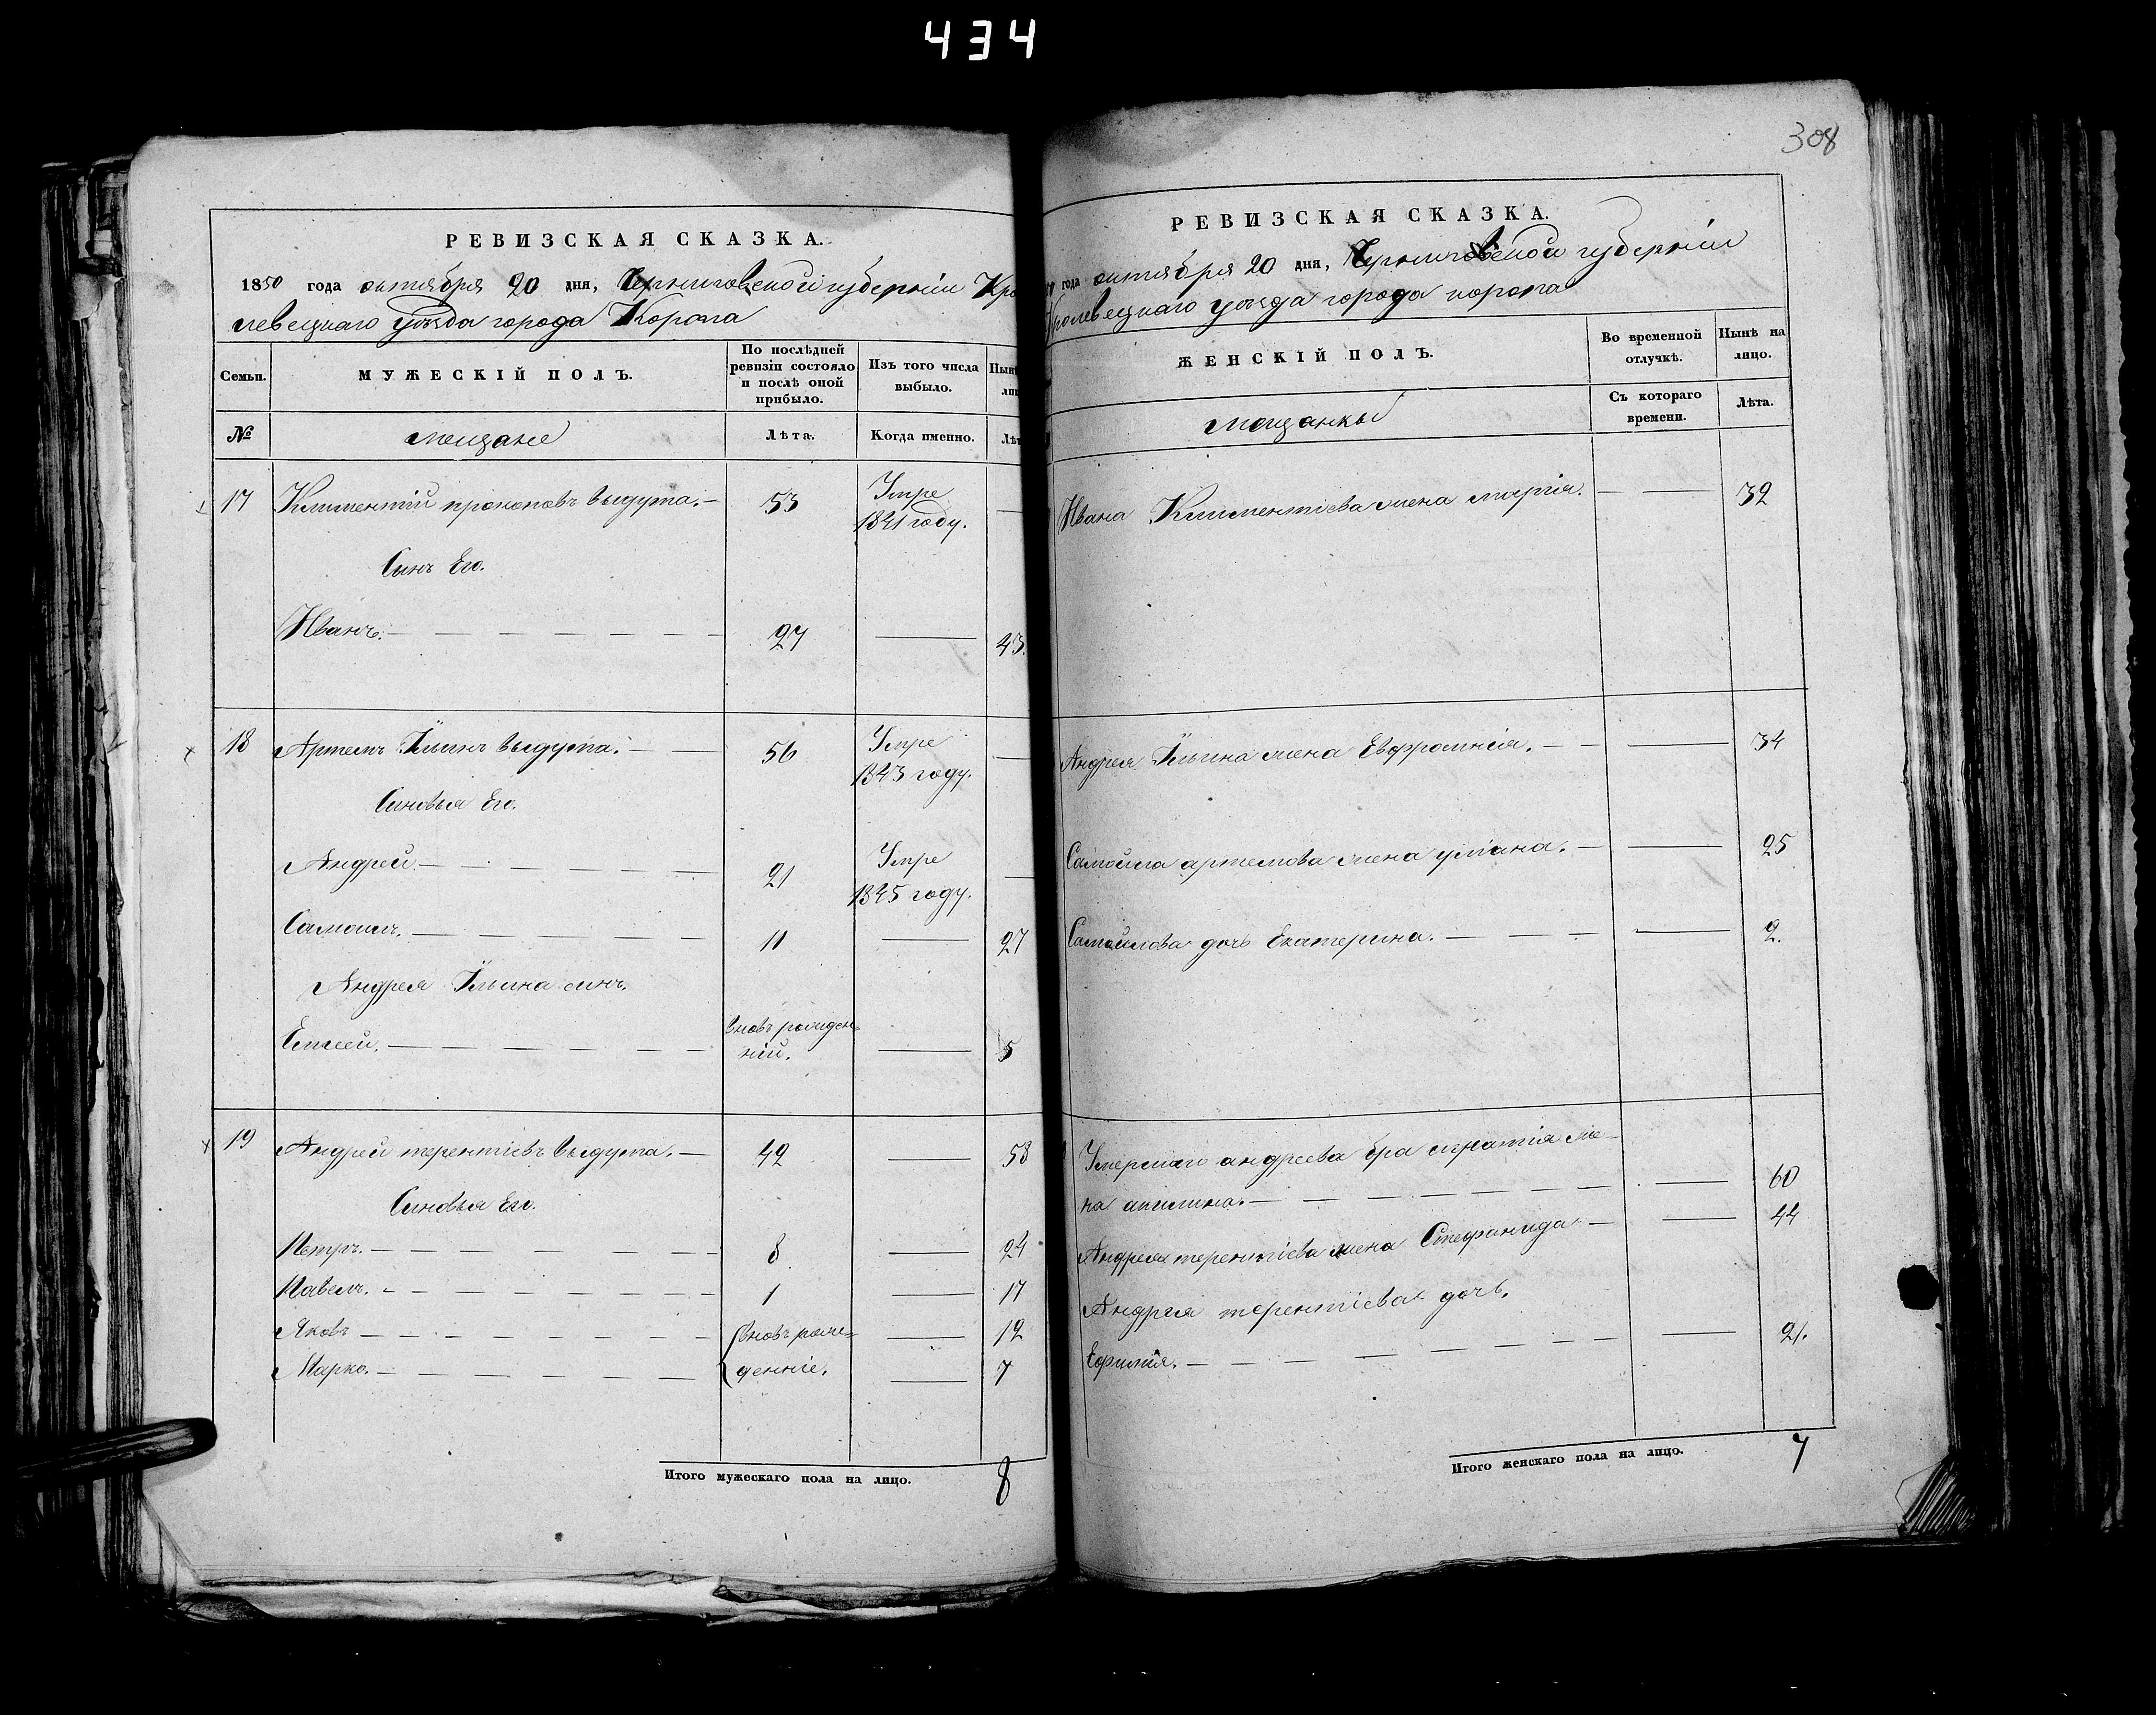 434
308
РЕВИЗСКАЯ СКАЗКА.
1850 года октября 20 дня, Черниговской губерніи Кро
левецкаго уѣзда города Коропа
Семьи.
МУЖЕСКІЙ ПОЛЪ.
По послѣдней
ревизіи состояло
и послѣ оной
прибыло.
Изъ того числа
выбыло.
Нынѣ
лиц
№
мещане
Лѣта.
Когда именно.
Лѣт
17 Климентій прокоповъ выдута. — 53 Умре
1841 году. —
Сынъ Его.
Иванъ. — 27 — 43.
18 Артемъ Ильинъ выдута. — 56 Умре
1843 году. —
Синовья Его.
Андрей — 21 Умре
1845 году. —
Самоилъ. — 11 — 27
Андрея Ильина синъ.
Елисей. — вновъ рожден
ній. — 5
19 Андрей терентіевъ выдута. — 42 — 58
Синовья Его.
Петръ. — 8 — 24
Павелъ. — 1 — 17
Яковъ — вновъ рож- — 12
Марко. — денніе. — 7
Итого мужескаго пола на лицо. 8
РЕВИЗСКАЯ СКАЗКА.
года октября 20 дня, Черниговской губерніи
Кролевецкаго уѣзда города коропа
ЖЕНСКІЙ ПОЛЪ.
Во временной
отлучкѣ.
Нынѣ на
лицо.
мещанки
Съ котораго
времени.
Лѣта.
Ивана Климентіева жена марія. — 32
Андрея Ильина жена Евфросинія. — 34
Самойла артемова жена уліана. — 25
Самойлова дочь Екатерина. — 2.
Умершаго андреева бра игнатія же-
на акилина. — 60
Андрея терентіева жена Стефанида — 44
Андрея терентіева дочь.
Ефимія. — 21.
Итого женскаго пола на лицо. 7